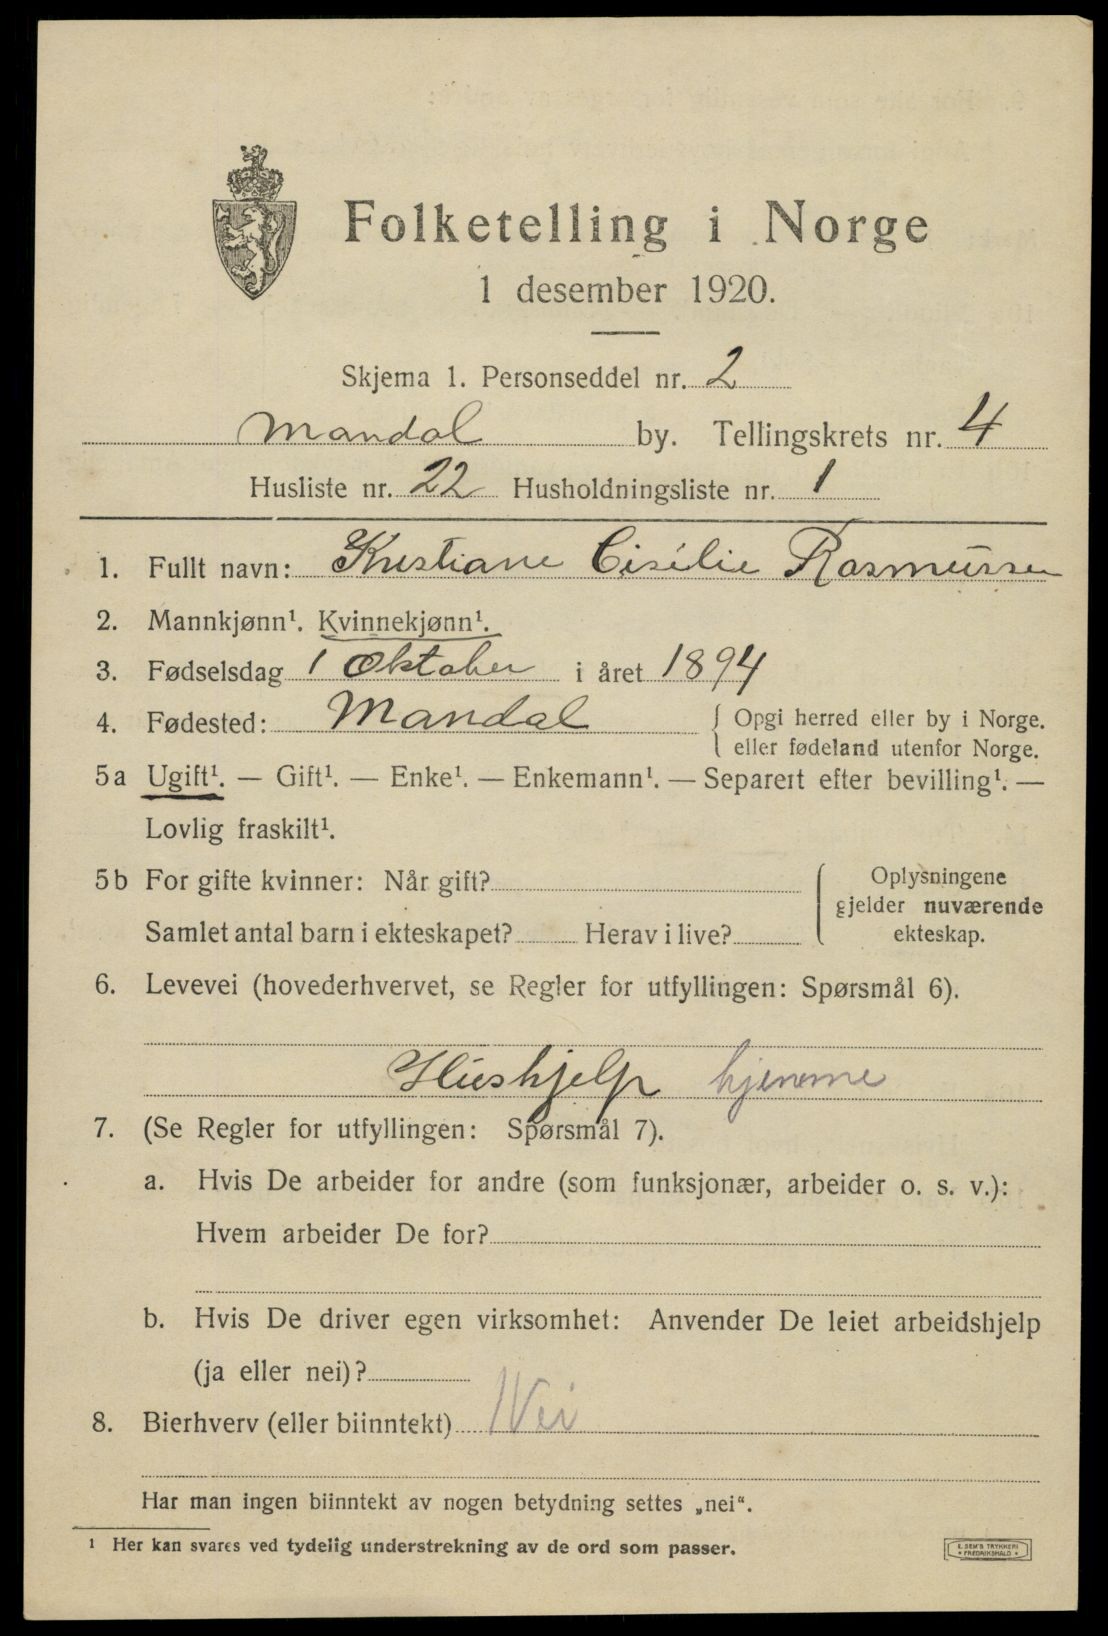 Folketelling i Norge
1 desember 1920.
Skjema 1. Personseddel nr. 2
Mandal by. Tellingskrets nr. 4
Husliste nr. 22 Husholdningsliste nr. 1
1. Fullt navn: Kristiane Cisilie Rasmussen
2. Mannkjønn¹. Kvinnekjønn¹.
3. Fødselsdag 1 Oktober i året 1894
4. Fødested: Mandal { Opgi herred eller by i Norge.
eller fødeland utenfor Norge.
5a Ugift¹. — Gift¹. — Enke¹. — Enkemann¹. — Separert efter bevilling¹. —
Lovlig fraskilt¹.
5b For gifte kvinner: Når gift?
Samlet antal barn i ekteskapet? Herav i live?
{ Oplysningene
gjelder nuværende
ekteskap.
6. Levevei (hovederhvervet, se Regler for utfyllingen: Spørsmål 6).
Hushjelp hjemme
7. (Se Regler for utfyllingen: Spørsmål 7).
a. Hvis De arbeider for andre (som funksjonær, arbeider o. s. v.):
Hvem arbeider De for?
b. Hvis De driver egen virksomhet: Anvender De leiet arbeidshjelp
(ja eller nei)?
8. Bierhverv (eller biinntekt) Nei
Har man ingen biinntekt av nogen betydning settes „nei“.
¹ Her kan svares ved tydelig understrekning av de ord som passer.
E. SEM'S TRYKKERI
• FREDRIKSHALD •